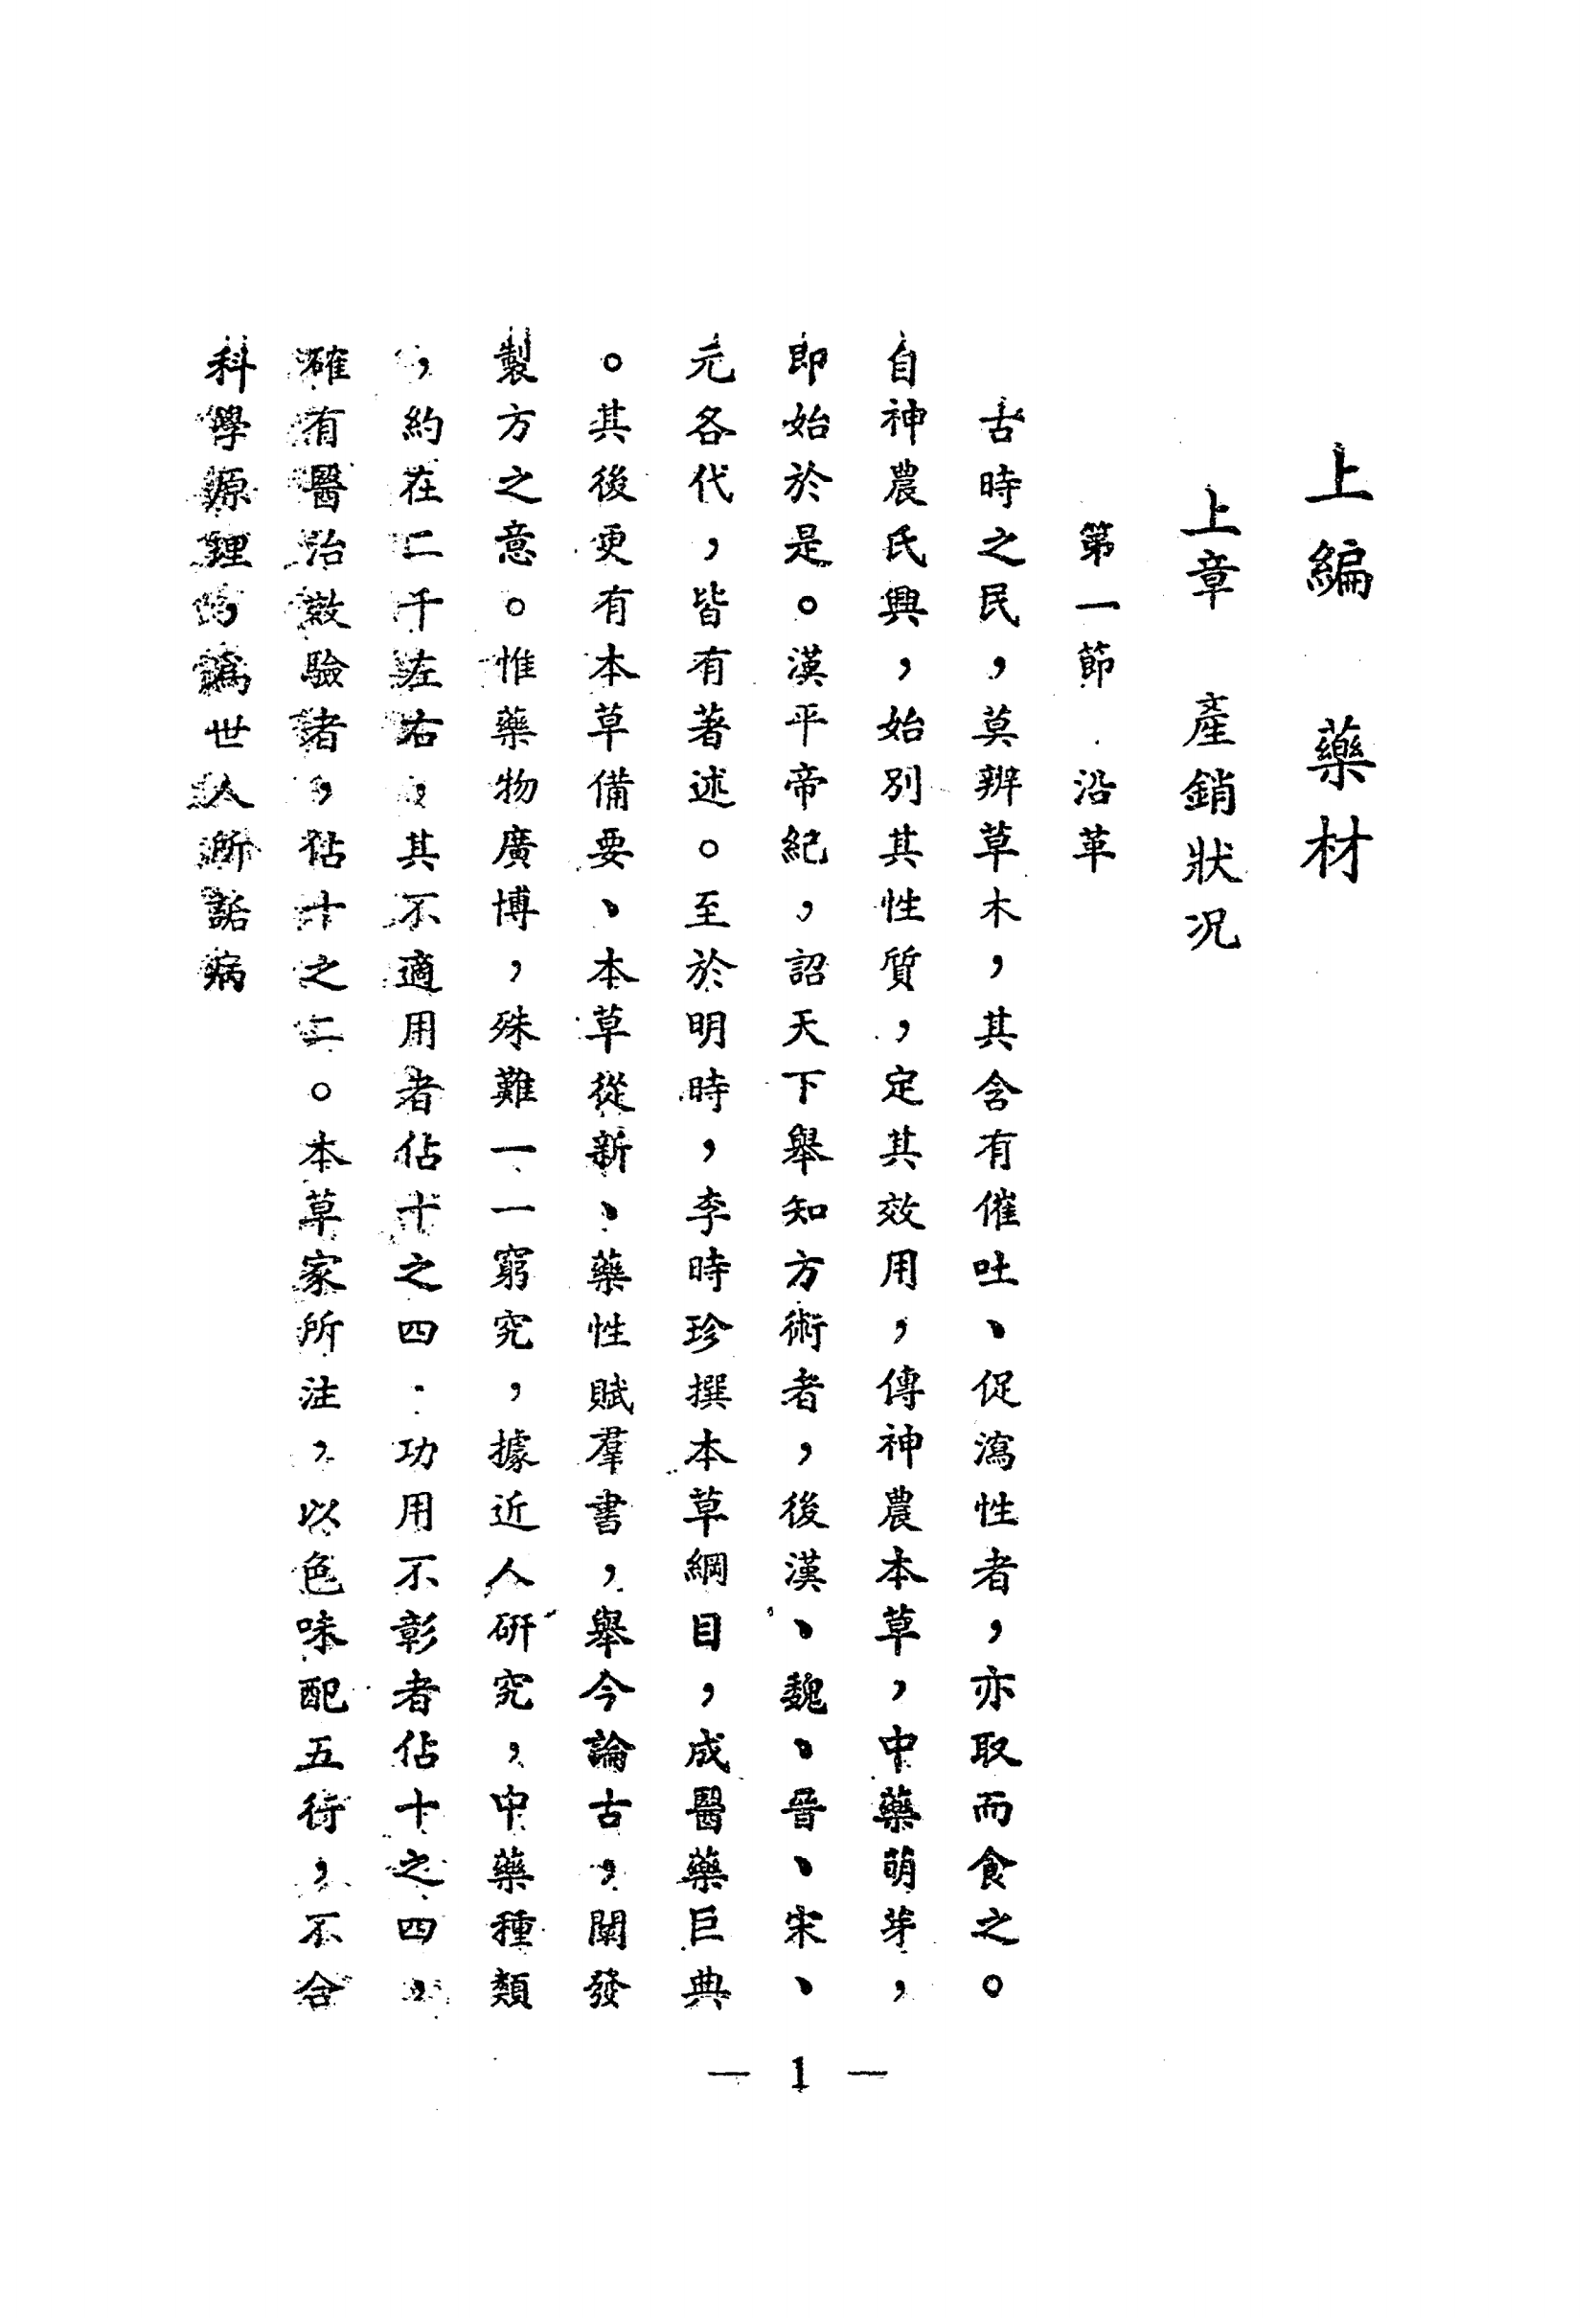 上編　藥材
上章　產銷狀況
第一節　沿革
古時之民，莫辨草木，其含有催吐、促瀉性者，亦取而食之。
自神農氏興，始別其性質，定其效用，傳神農本草，中藥萌芽，
即始於是。漢平帝紀，詔天下舉知方術者，後漢、魏、晉、宋、
元各代，皆有著述。至於明時，李時珍撰本草綱目，成醫藥巨典
。其後更有本草備要、本草從新、藥性賦羣書，舉今論古，闡發
製方之意。惟藥物廣博，殊難一一窮究，據近人研究，中藥種類
，約在二千左右，其不適用者佔十之四．功用不彰者佔十之四，
確有醫治效驗者，佔十之二。本草家所注，以色味配五行，不合
科學源理，為世人所詬病
— 1 —